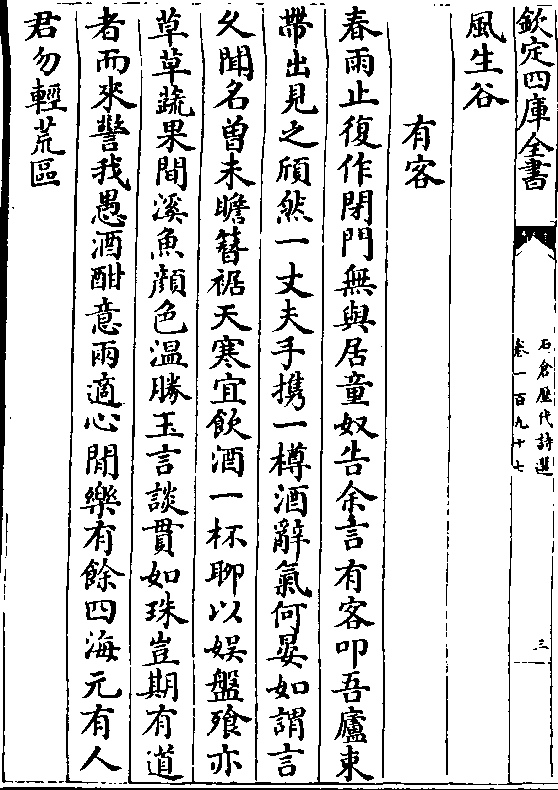 欽定四庫全書
石倉歷代詩選
卷一百九十七
三
風生谷
有客
春雨止復作閉門無與居童奴告余言有客叩吾廬束
帶出見之頎然一丈夫手携一樽酒辭氣何晏如謂言
久聞名曽未瞻簪裾天寒宜飲酒一杯聊以娱盤飱亦
草草蔬果間溪魚顔色温勝玉言談貫如珠豈期有道
者而來警我愚酒酣意兩適心閒樂有餘四海元有人
君勿輕荒區